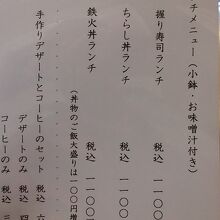 チメニュー(小鉢・お味噌汁付き)
握り寿司ランチ 税込 一一〇〇
ちらし丼ランチ 税込 一一〇〇
鉄火丼ランチ 税込 一一〇〇
(丼物のご飯大盛りは一〇〇円増
手作りデザートとコーヒーのセット 税込 六
デザートのみ 税込 四
コーヒーのみ 税込 三